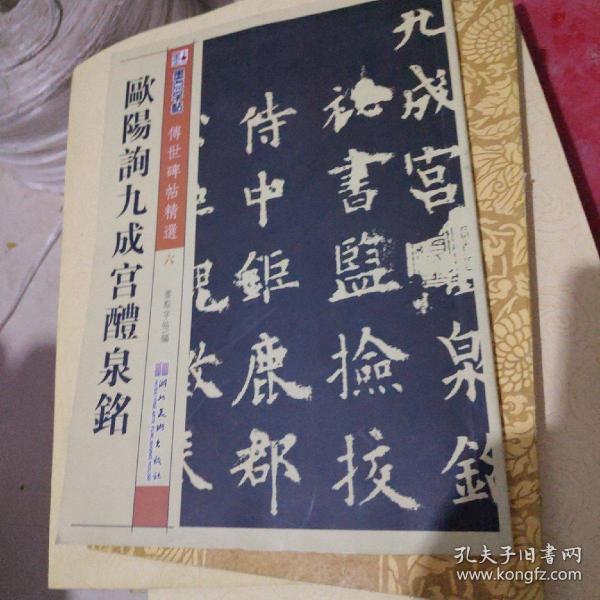 歐陽詢九成宮醴泉銘
墨点字帖
傳世碑帖精選
六
墨點字帖 編
湖北美術出版社
九成宮醴泉銘
祕書監撿挍
侍中鉅鹿郡
公臣魏徵奉
孔夫子旧书网
www.kongfz.com